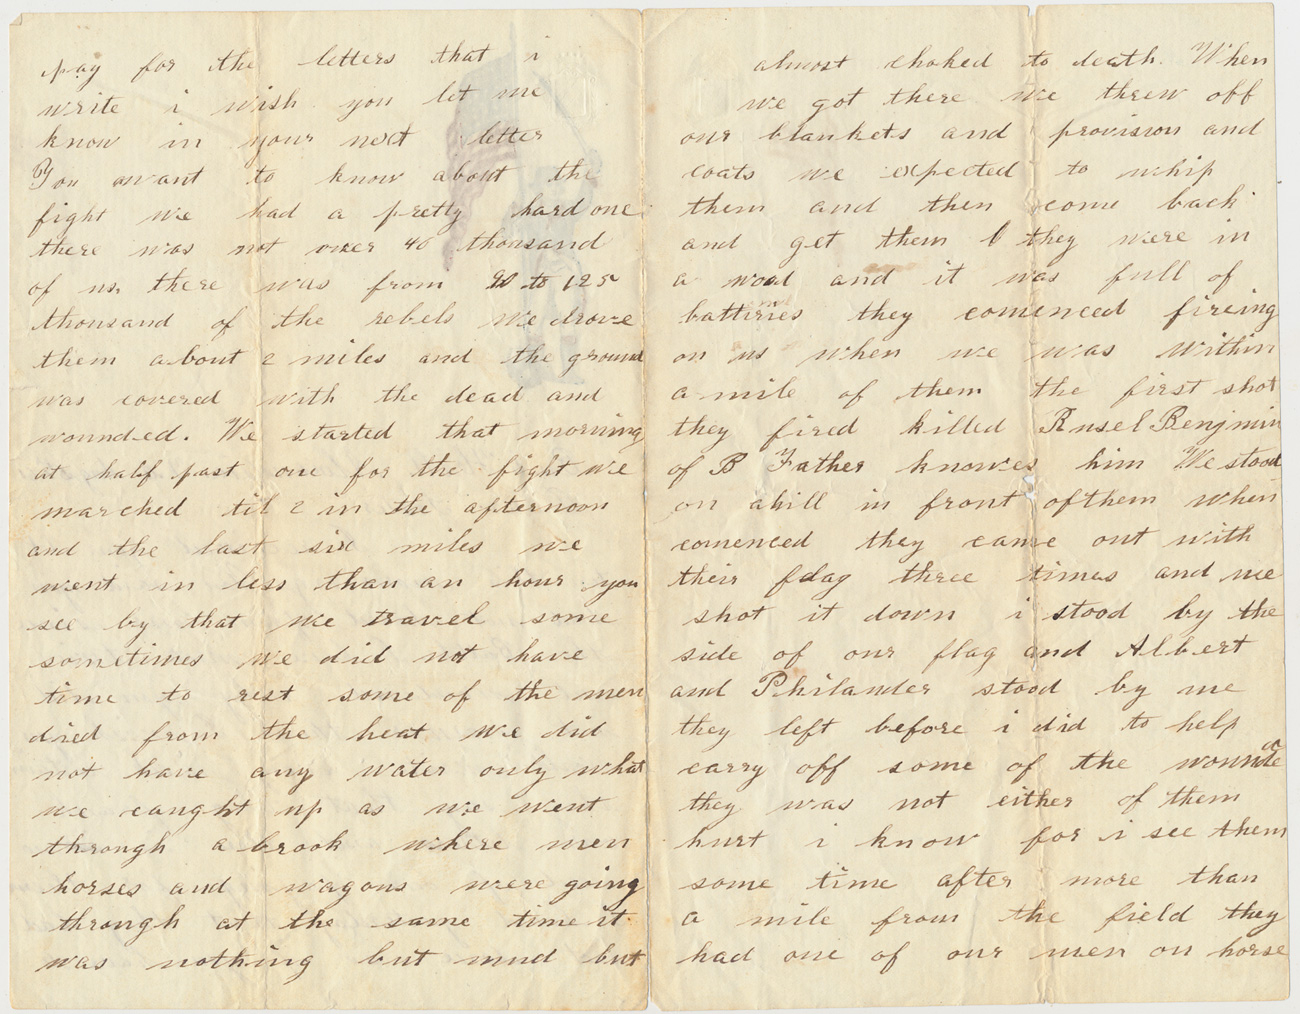 pay for the letters that i
write i wish you let me
know in your next letter
You want to know about the
fight we had a pretty hard one
there was not over 40 thousand
of us there was from 90 to 125
thousand of the rebels we drove
them about 2 miles and the ground
was covered with the dead and
wounded. We started that morning
at half past one for the fight we
marched til 2 in the afternoon
and the last six miles we
went in less than an hour you
see by that we travel some
sometimes we did not have
time to rest some of the men
died from the heat we did
not have any water only what
we caught up as we went
through a brook where men
horses and wagons were going
through at the same time it
was nothing but mud but
almost choked to death. When
we got there we threw off
our blankets and provision and
coats we expected to whip
them and then come back
and get them they were in
a wood and it was full of
batteries they comenced fireing
on us when we was within
a mile of them the first shot
they fired killed Rusel Benjmin
of B Father knowes him We stood
on a hill in front of them when
comenced they came out with
their flag three times and we
shot it down i stood by the
side of our flag and Albert
and Philander stood by me
they left before i did to help
carry off some of the wounde
they was not either of them
hurt i know for i see them
some time after more than
a mile from the field they
had one of our men on horse